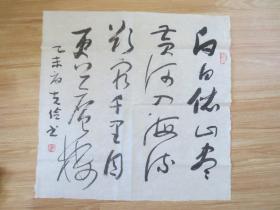 白日依山尽
黄河入海流
欲穷千里目
更上一层楼
乙未春克俭书